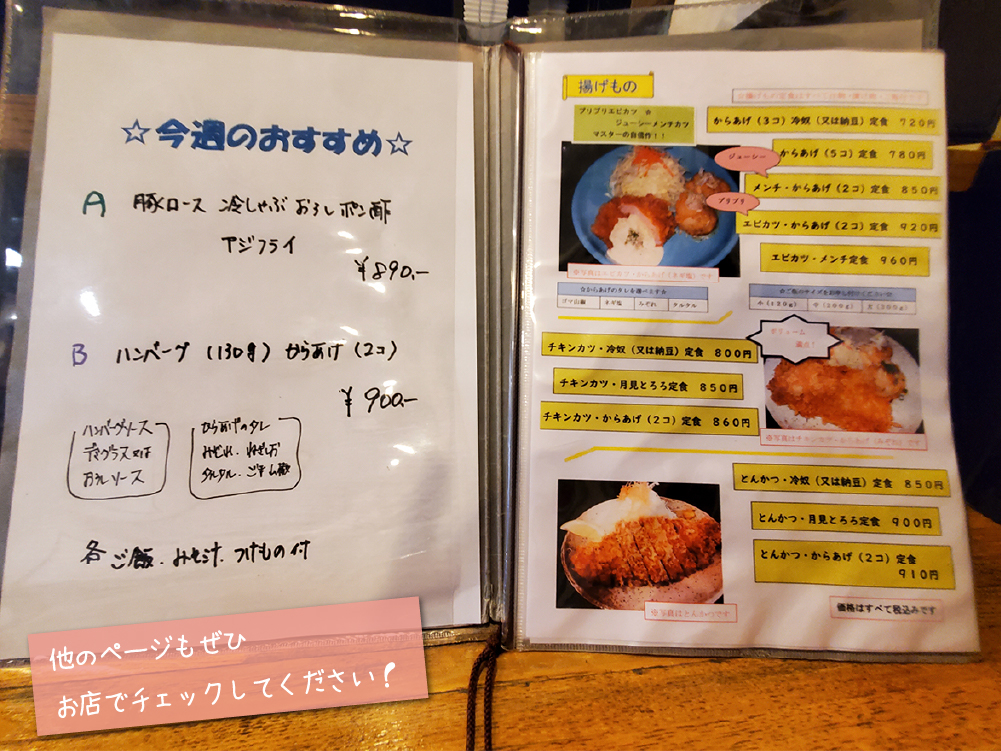 ☆今週のおすすめ☆
A 豚ロース 冷しゃぶ おろしポン酢
アジフライ
¥890.-
B ハンバーグ（130g）からあげ（2コ）
¥900.-
ハンバーグソース
デミグラス又は
おろしソース
からあげのタレ
みぞれ、ねぎしお
タルタル、ごま山椒
各ご飯、みそ汁、つけもの付
揚げもの
プリプリエビカツ ☆
ジューシーメンチカツ
マスターの自信作！！
からあげ（3コ）冷奴（又は納豆）定食 720円
ジューシー
からあげ（5コ）定食 780円
メンチ・からあげ（2コ）定食 850円
プリプリ
エビカツ・からあげ（2コ）定食 920円
エビカツ・メンチ定食 960円
※写真はエビカツ・からあげ（ネギ塩）です
☆からあげのタレを選べます☆
ゴマ山椒 ネギ塩 みぞれ タルタル
小（120g） 中（200g） 大（300g）
ボリューム
満点！
チキンカツ・冷奴（又は納豆）定食 800円
チキンカツ・月見とろろ定食 850円
チキンカツ・からあげ（2コ）定食 860円
※写真はチキンカツ・からあげ（みぞれ）です
とんかつ・冷奴（又は納豆）定食 850円
とんかつ・月見とろろ定食 900円
とんかつ・からあげ（2コ）定食
910円
※写真はとんかつです
価格はすべて税込みです
他のページもぜひ
お店でチェックしてください！